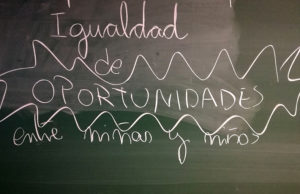 Igualdad
de
OPORTUNIDADES
entre niñas y niños